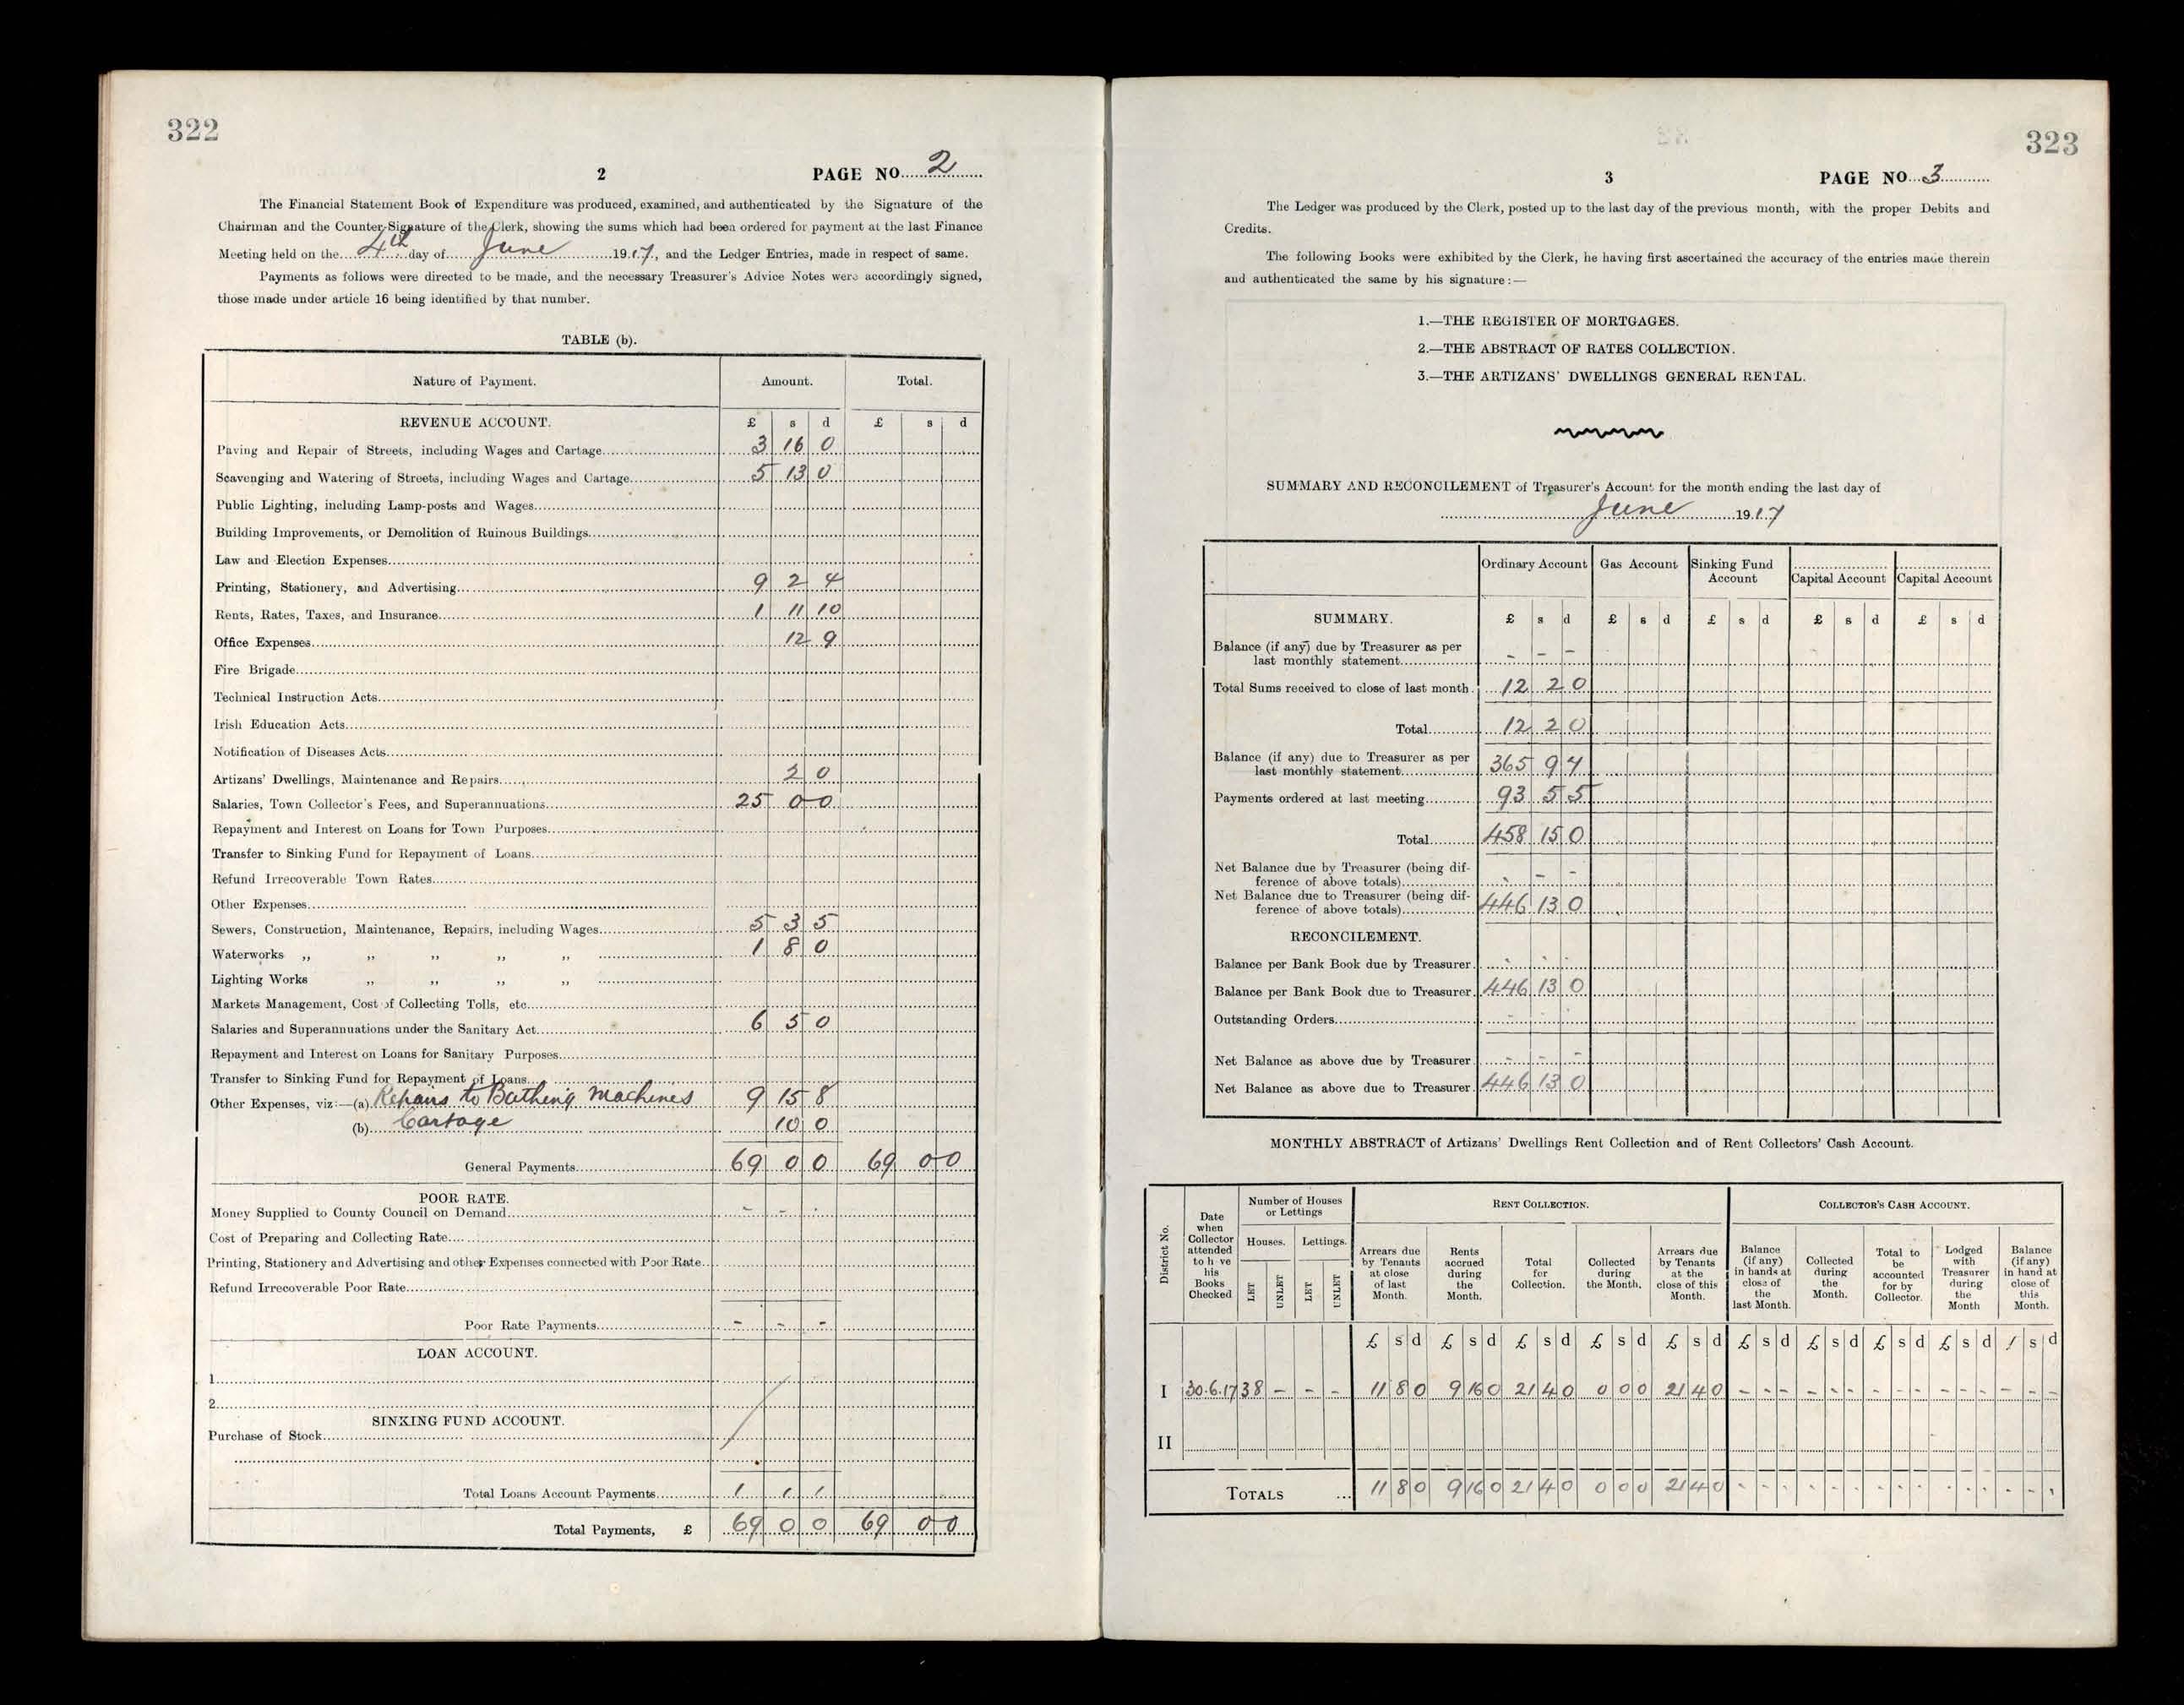 322
2 PAGE NO. 2
The Financial Statement Book of Expenditure was produced, examined, and authenticated by the Signature of the
Chairman and the Counter-Signature of the Clerk, showing the sums which had been ordered for payment at the last Finance
Meeting held on the 4th day of June 1917, and the Ledger Entries, made in respect of same.
Payments as follows were directed to be made, and the necessary Treasurer's Advice Notes were accordingly signed,
those made under article 16 being identified by that number.
TABLE (b).
Nature of Payment. Amount. Total.
REVENUE ACCOUNT. £ s d £ s d
Paving and Repair of Streets, including Wages and Cartage 3 16 0
Scavenging and Watering of Streets, including Wages and Cartage 5 13 0
Public Lighting, including Lamp-posts and Wages
Building Improvements, or Demolition of Ruinous Buildings
Law and Election Expenses
Printing, Stationery, and Advertising 9 2 4
Rents, Rates, Taxes, and Insurance 1 11 10
Office Expenses 12 9
Fire Brigade
Technical Instruction Acts
Irish Education Acts
Notification of Diseases Acts
Artizans' Dwellings, Maintenance and Repairs 2 0
Salaries, Town Collector's Fees, and Superannuations 25 0 0
Repayment and Interest on Loans for Town Purposes
Transfer to Sinking Fund for Repayment of Loans
Refund Irrecoverable Town Rates
Other Expenses
Sewers, Construction, Maintenance, Repairs, including Wages 5 3 5
Waterworks ,, ,, ,, ,, ,, 1 8 0
Lighting Works ,, ,, ,, ,,
Markets Management, Cost of Collecting Tolls, etc.
Salaries and Superannuations under the Sanitary Act 6 5 0
Repayment and Interest on Loans for Sanitary Purposes
Transfer to Sinking Fund for Repayment of Loans
Other Expenses, viz:—(a) Repairs to Bathing Machines 9 15 8
(b) Cartage 10 0
General Payments 69 0 0 69 0 0
POOR RATE.
Money Supplied to County Council on Demand - - -
Cost of Preparing and Collecting Rate
Printing, Stationery and Advertising and other Expenses connected with Poor Rate
Refund Irrecoverable Poor Rate
Poor Rate Payments - - -
LOAN ACCOUNT.
1
2
SINKING FUND ACCOUNT.
Purchase of Stock
Total Loans Account Payments
Total Payments, £ 69 0 0 69 0 0
323
3 PAGE NO 3
The Ledger was produced by the Clerk, posted up to the last day of the previous month, with the proper Debits and
Credits.
The following Books were exhibited by the Clerk, he having first ascertained the accuracy of the entries made therein
and authenticated the same by his signature:—
1.—THE REGISTER OF MORTGAGES.
2.—THE ABSTRACT OF RATES COLLECTION.
3.—THE ARTIZANS' DWELLINGS GENERAL RENTAL.
SUMMARY AND RECONCILEMENT of Treasurer's Account for the month ending the last day of
June 1917
Ordinary Account Gas Account Sinking Fund Account Capital Account Capital Account
SUMMARY. £ s d £ s d £ s d £ s d £ s d
Balance (if any) due by Treasurer as per
last monthly statement - - -
Total Sums received to close of last month 12 2 0
Total 12 2 0
Balance (if any) due to Treasurer as per
last monthly statement 365 9 7
Payments ordered at last meeting 93 5 5
Total 458 15 0
Net Balance due by Treasurer (being dif-
ference of above totals) - - -
Net Balance due to Treasurer (being dif-
ference of above totals) 446 13 0
RECONCILEMENT.
Balance per Bank Book due by Treasurer - - -
Balance per Bank Book due to Treasurer 446 13 0
Outstanding Orders - - -
Net Balance as above due by Treasurer - - -
Net Balance as above due to Treasurer 446 13 0
MONTHLY ABSTRACT of Artizans' Dwellings Rent Collection and of Rent Collectors' Cash Account.
District No.
Date when Collector attended to have his Books Checked
Number of Houses or Lettings
Houses. Lettings.
LET UNLET LET UNLET
RENT COLLECTION.
Arrears due by Tenants at close of last Month.
Rents accrued during the Month.
Total for Collection.
Collected during the Month.
Arrears due by Tenants at the close of this Month.
COLLECTOR'S CASH ACCOUNT.
Balance (if any) in hands at close of the last Month.
Collected during the Month.
Total to be accounted for by Collector.
Lodged with Treasurer during the Month
Balance (if any) in hand at close of this Month.
£ s d £ s d £ s d £ s d £ s d £ s d £ s d £ s d £ s d £ s d
I 30.6.17 38 - - - 11 8 0 9 16 0 21 4 0 0 0 0 21 4 0 - - - - - - - - - - - - - - -
II
TOTALS ... 11 8 0 9 16 0 21 4 0 0 0 0 21 4 0 - - - - - - - - - - - - - - -